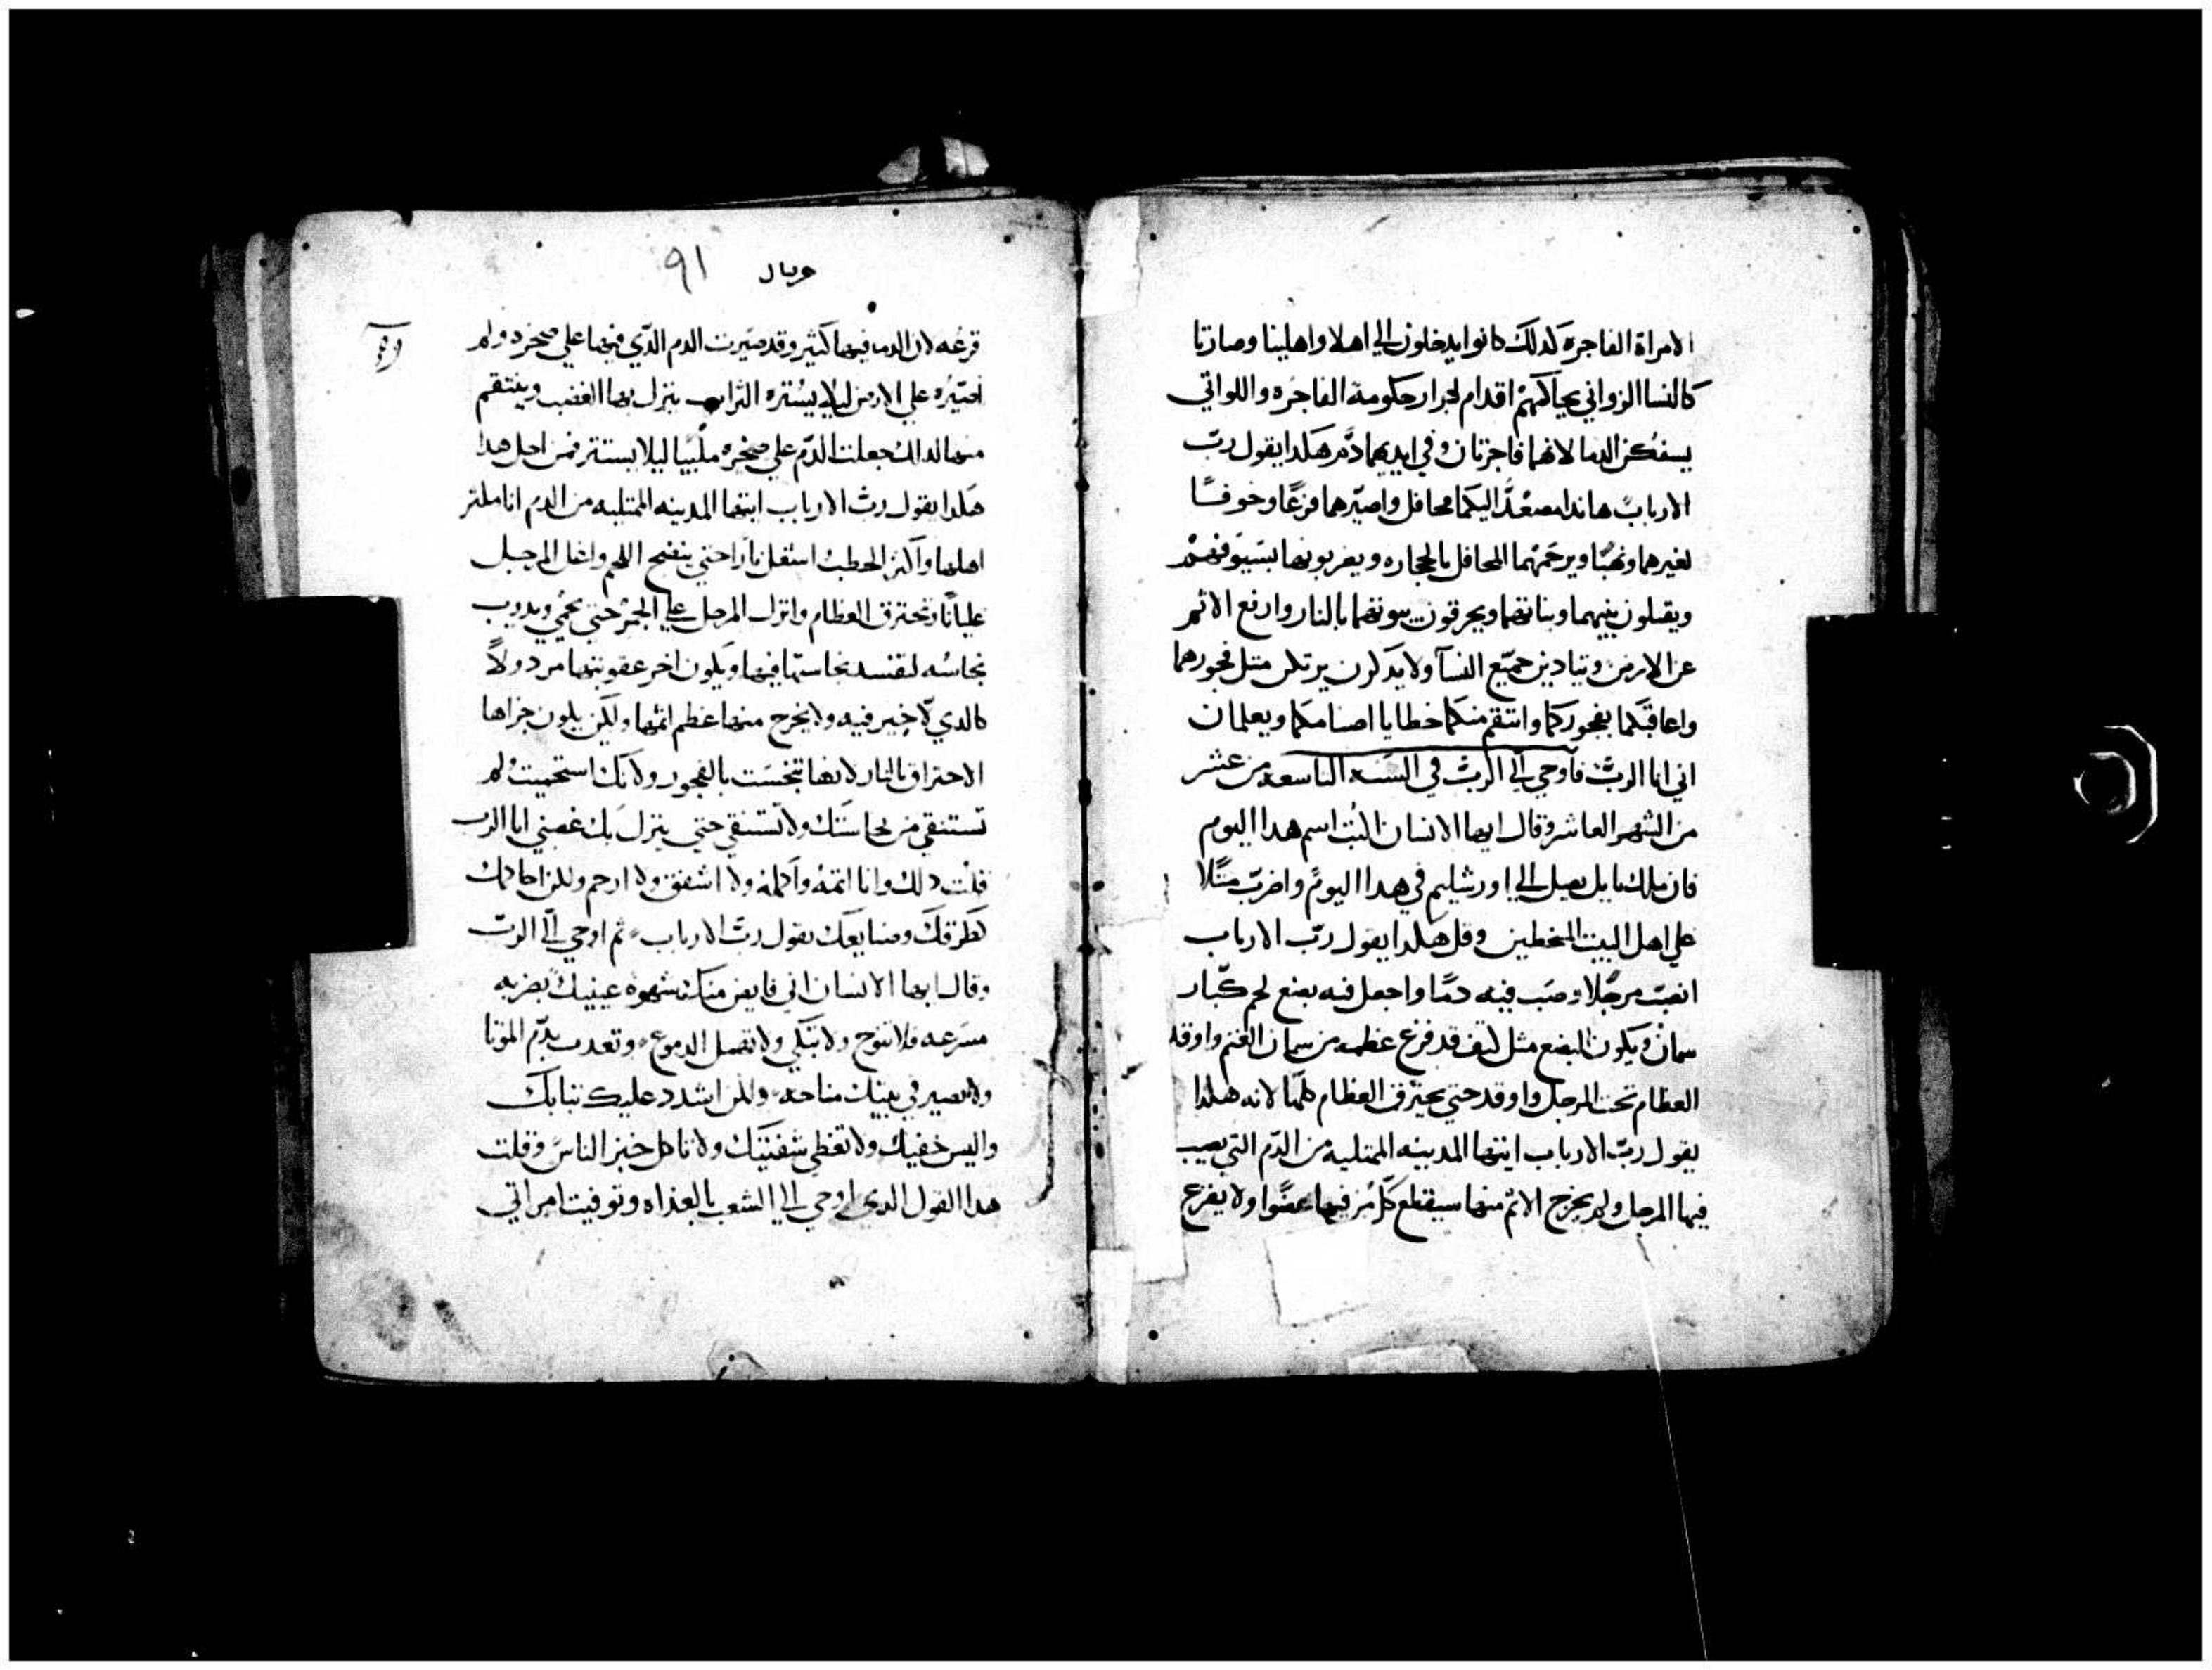 الامراة الفاجرة كدلك كانوا يدخلون الي اهلا واهليبا وصارتا
كالنسا الزواني يحاكمهم اقدام لجرار حكومة الفاجره واللواتي
يسفكن الدما لانهما فاجرتان وفي ايديهما دم هكدا يقول رب
الارباب هاندا مصعد اليكما محافل واصيرهما فزعا وخوفا
لغيرهما ونهبا ويرجمهما المحافل بالحجاره ويضربونهما بسيوفهم
ويقتلون بنيهما وبناتهما ويحرقون بيوتهما بالنار وارفع الاثم
عن الارض ويتادبن جميع النسا ولا يدكرن يرتكبن مثل فجورهما
واعاقبكما بفجوركما وانتقم منكما خطايا اصنامكما ويعلمان
اني انا الرب فاوحي الي الرب في السنه التاسعه من عشر
من الشهر العاشر وقال ايها الانسان اكتب اسم هدا اليوم
فان ملك بابل يصل الي اورشليم في هدا اليوم واضرب مثلا
علي اهل البيت المسخطين وقل هكدا يقول رب الارباب
انصب مرجلا وصب فيه دما واجعل فيه بضع لحم كبار
سمان ويكون البضع مثل كتف قد فرغ عظمه من سمان الغنم واوقد
العظام تحت المرجل واوقد حتي يحترق العظام كلها لانه هكدا
يقول رب الارباب ايتها المدينه الممتليه من الدم التي يصب
فيها المرجل ولم يخرج الاثم منها سيقطع كل من فيها عضوا ولا يفرع
وبال ٩١
قرعه لان الدما فيها كثير وقد صيرت الدم الذي فيها علي صخره ولم
اصيره علي الارض ليلا يستره التراب ينزل بها الغضب وينتقم
منها لدلك جعلت الدم علي صخره ملسا ليلا يستتر فمن اجل هدا
هكدا يقول رب الارباب ايتها المدينه الممتليه من الدم انا مكثر
اهلها واكثر الحطب اشعل نارا حتي ينضج اللحم واغل المرجل
غليانا وتحترق العظام واترك المرجل علي الجمر حتي يحمي ويدوب
نحاسه لتفسد نجاستها فيها ويكون اخر عقوبتها مردولا
كالدي لا خير فيه ولا يخرج منها عظم اثمها ولكن يكون جزاها
الاحتراق بالنار لانها تنجست بالفجور ولانك استحميت ولم
تستنقي من نجاستك ولا تستنقي حتي ينزل بك غضبي انا الرب
قلت دلك وانا اتمه واكمله ولا اشفق ولا ارحم ولكن احاكمك
كطرقك وصنايعك يقول رب الارباب ثم اوحي الي الرب
وقال ايها الانسان اني قابض منك شهوة عينيك بضربه
مسرعه فلا تنوح ولا تبكي ولا تصل الدموع وتعدب بدم الموتا
ولا تصير في بيتك مناحه ولكن اشدد عليك تيابك
والبس خفيك ولا تغطي شفتيك ولا تاكل خبز الناس وقلت
هدا القول الدي اوحي الي الشعب بالغداه وتوفيت امراتي